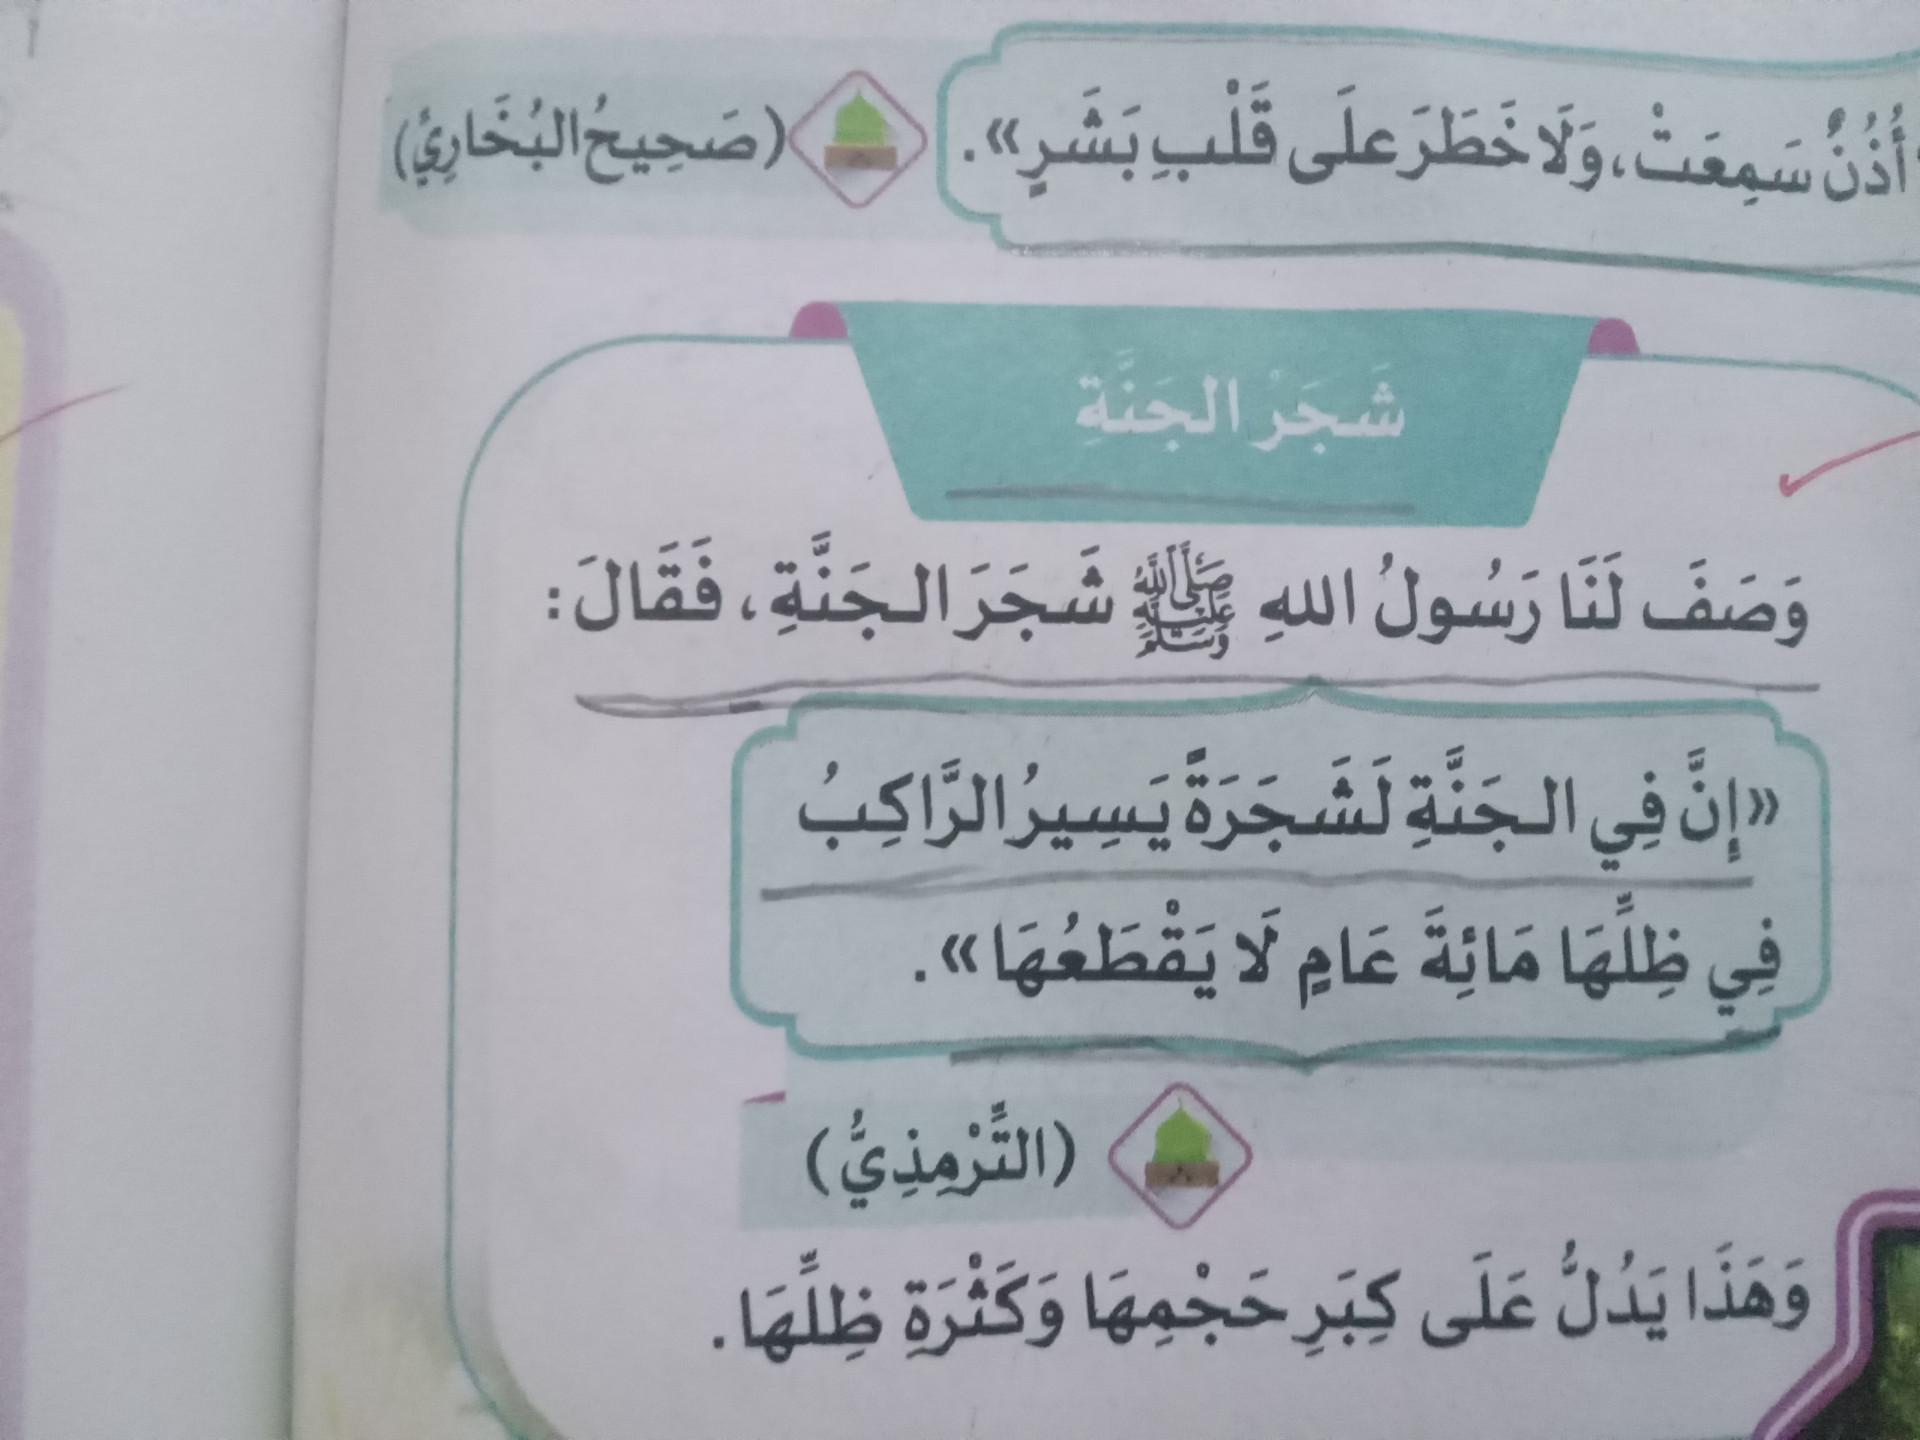 أُذُنٌ سَمِعَتْ، وَلَا خَطَرَ عَلَى قَلْبِ بَشَرٍ».  (صَحِيحُ البُخَارِيِّ)
شَجَرُ الجَنَّةِ
وَصَفَ لَنَا رَسُولُ اللهِ ﷺ شَجَرَ الجَنَّةِ، فَقَالَ:
«إِنَّ فِي الجَنَّةِ لَشَجَرَةً يَسِيرُ الرَّاكِبُ
فِي ظِلِّهَا مَائِةَ عَامٍ لَا يَقْطَعُهَا».
(التِّرْمِذِيُّ)
وَهَذَا يَدُلُّ عَلَى كِبَرِ حَجْمِهَا وَكَثْرَةِ ظِلِّهَا.